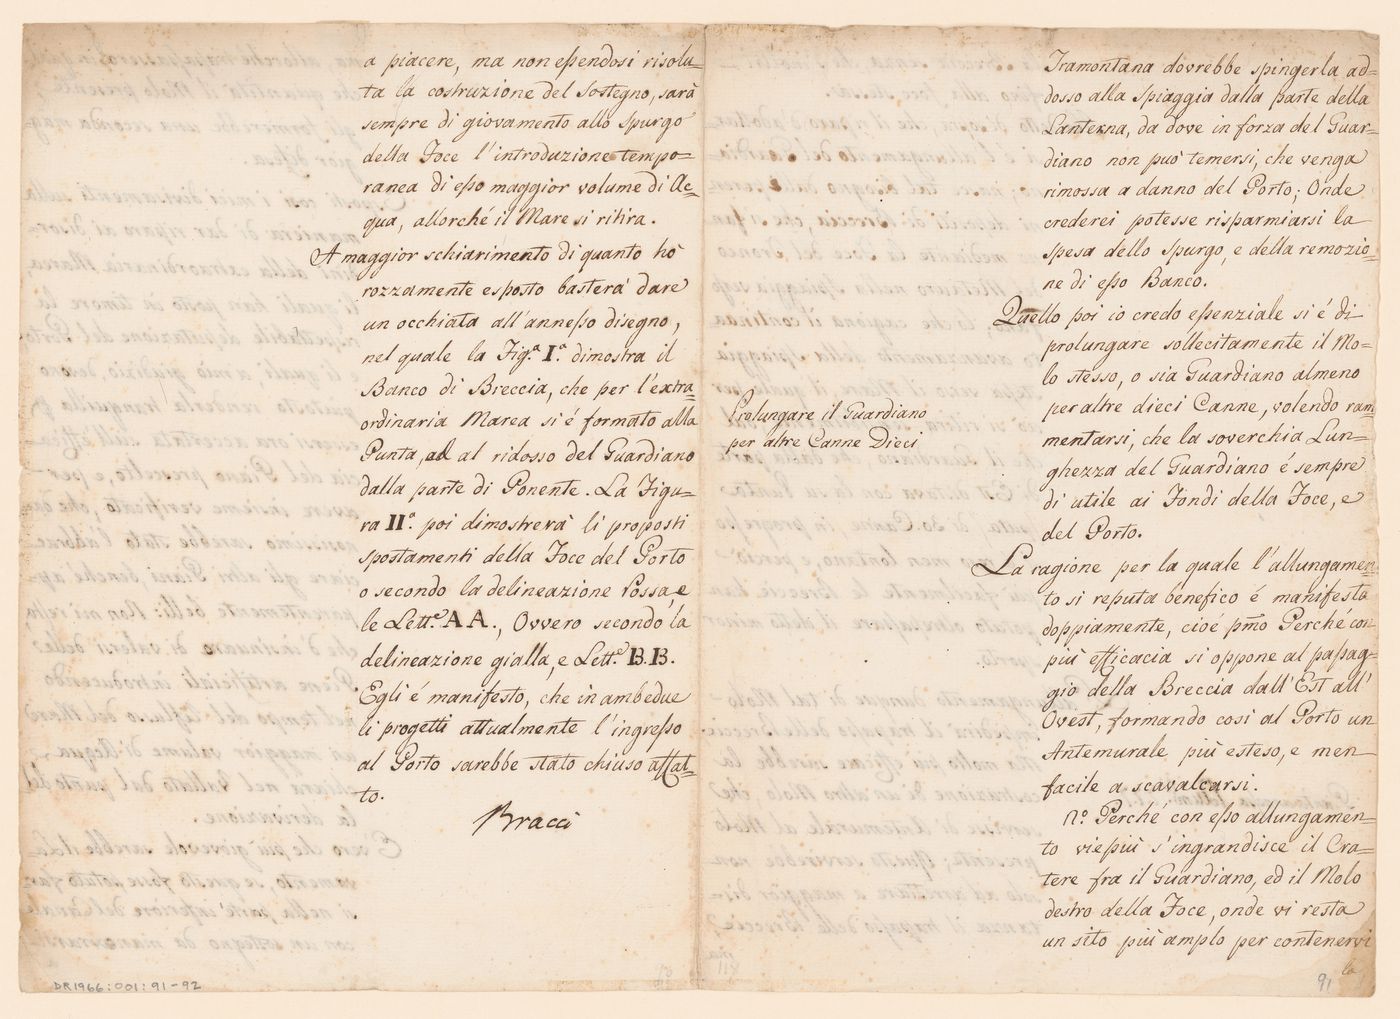 a piacere, ma non essendosi risolu=
ta la costruzione del Sostegno, sarà
sempre di giovamento allo spurgo
della Foce l'introduzione tempo=
ranea di esso maggior volume di Ac=
qua, allorché il Mare si ritira.
A maggior schiarimento di quanto hò
rozzamente esposto basterà dare
un occhiata all'annesso disegno,
nel quale la Fig.ª I.ª dimostra il
Banco di Breccia, che per l'extra=
ordinaria Marea si é formato alla
Punta, ed al ridosso del Guardiano
dalla parte di Ponente. La Figu=
ra II.ª poi dimostrerà li proposti
spostamenti della Foce del Porto
o secondo la delineazione rossa, e
le Lett.e AA., Ovvero secondo la
delineazione gialla, e Lett.e B.B.
Egli é manifesto, che in ambedue
li progetti attualmente l'ingresso
al Porto sarebbe stato chiuso affat=
to.
Bracci
DR1966:001:91-92
Prolungare il Guardiano
per altre Canne Dieci
Tramontana dovrebbe spingerla ad=
dosso alla Spiaggia dalla parte della
Lanterna, da dove in forza del Guar=
diano non può temersi, che venga
rimossa a danno del Porto; Onde
crederei potesse risparmiarsi la
spesa dello spurgo, e della remozio=
ne di esso Banco.
Quello poi io credo essenziale si é di
prolungare sollecitamente il Mo=
lo stesso, o sia Guardiano almeno
per altre dieci Canne, volendo ram=
mentarsi, che la soverchia Lun=
ghezza del Guardiano é sempre
di utile ai Fondi della Foce, e
del Porto.
La ragione per la quale l'allungamen=
to si reputa benefico é manifesta
doppiamente, cioé pmo Perché con
più efficacia si oppone al passag=
gio della Breccia dall'Est all'
Ovest, formando così al Porto un
Antemurale più esteso, e men
facile a scavalcarsi.
IIº. Perché con esso allungamen=
to viepiù s'ingrandisce il Cra=
tere fra il Guardiano, ed il Molo
destro della Foce, onde vi resta
un sito più amplo per contenervi
la
91